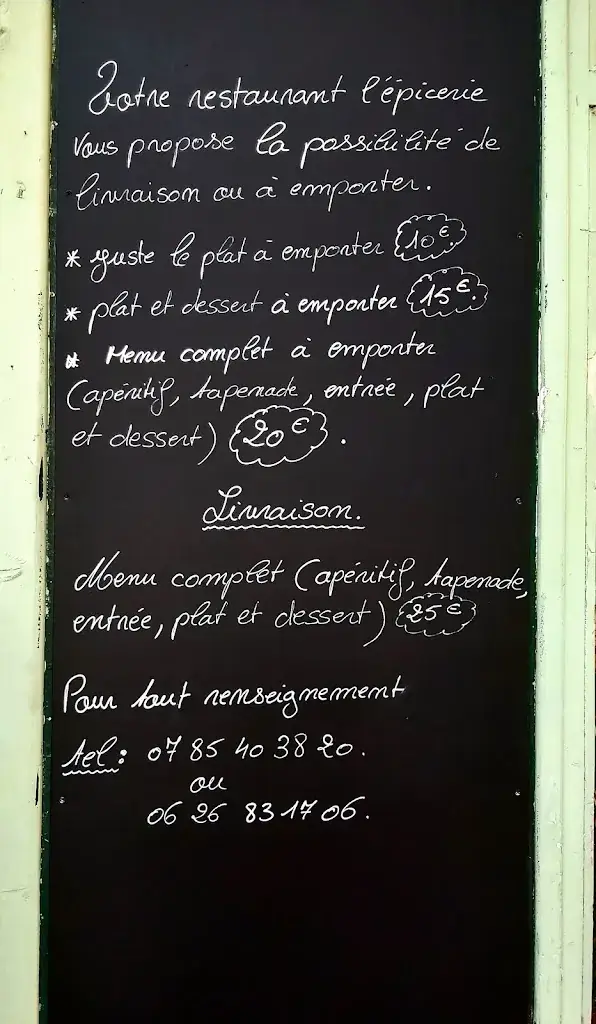 Votre restaurant l'épicerie
vous propose la possibilité de
livraison ou à emporter.
* juste le plat à emporter 10€.
* plat et dessert à emporter 15€.
* Menu complet à emporter
(apéritif, tapenade, entrée, plat
et dessert) 20€.
Livraison.
Menu complet (apéritif, tapenade,
entrée, plat et dessert) 25€
Pour tout renseignement
tel: 07 85 40 38 20.
ou
06 26 83 17 06.